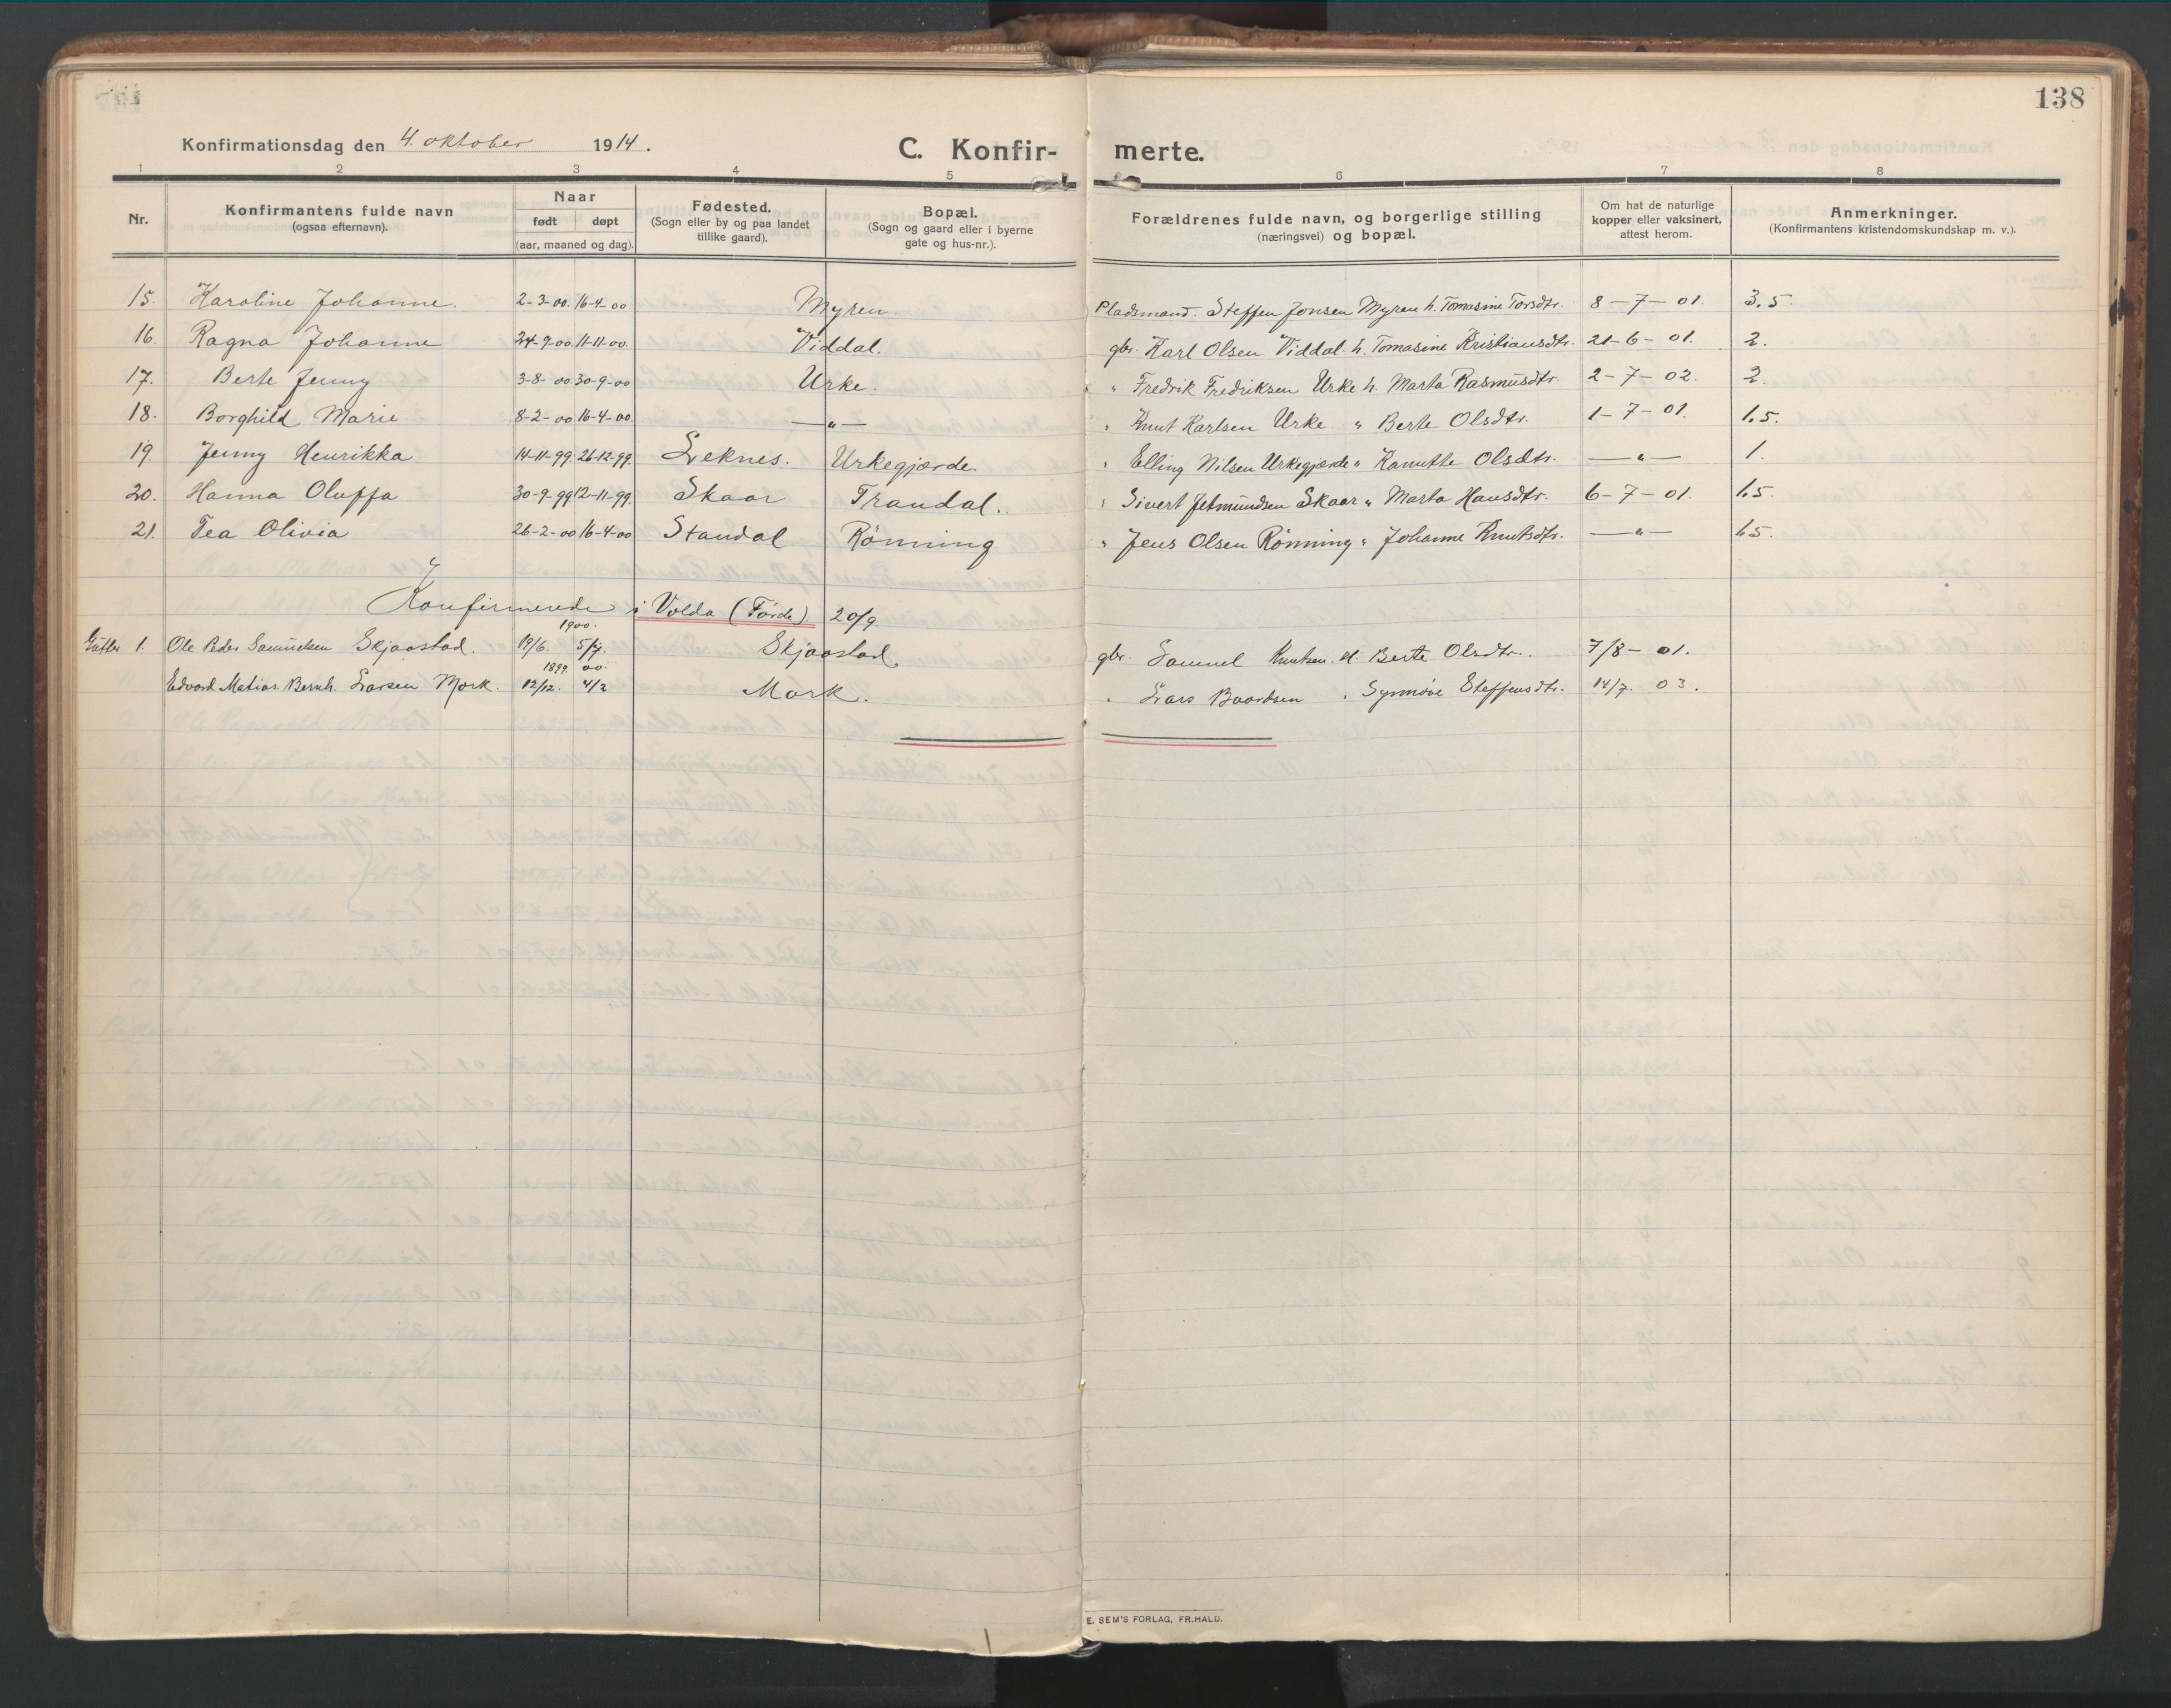 138
Konfirmationsdag den 4. oktober 1914.
C. Konfir- merte.
1 2 3 4 5 6 7 8
Nr.
Konfirmantens fulde navn
(ogsaa efternavn).
Naar
født døpt
(aar, maaned og dag).
Fødested.
(Sogn eller by og paa landet
tillike gaard).
Bopæl.
(Sogn og gaard eller i byerne
gate og hus-nr.).
Forældrenes fulde navn, og borgerlige stilling
(næringsvei) og bopæl.
Om hat de naturlige
kopper eller vaksinert,
attest herom.
Anmerkninger.
(Konfirmantens kristendomskundskap m. v.).
15. Karoline Johanne. 2-3-00. 16-4-00 Myren Pladsmand. Steffen Jonsen Myren h. Tomasine Torsdtr. 8-7-01. 3.5.
16. Ragna Johanne 24-9-00 11-11-00. Viddal. gbr. Karl Olsen Viddal. h. Tomasine Kristiansdtr. 21-6-01. 2.
17. Berte Jenny 3-8-00 30-9-00 Urke. " Fredrik Fredriksen Urke h. Marta Rasmusdtr. 2-7-02. 2.
18. Borghild Marie 8-2-00 16-4-00. —"— " Knut Karlsen Urke. " Berte Olsdtr. 1-7-01. 1.5.
19. Jenny Henrikka 14-11-99. 26-12-99. Leknes. Urkegjærde. " Elling Nilsen Urkegjærde " Kanutte Olsdtr. —"— 1.
20. Hanna Oluffa 30-9-99 12-11-99. Skaar Trandal. " Sivert Jetmundsen Skaar " Marta Hansdtr. 6-7-01. 1.5.
21. Tea Olivia 26-2-00 16-4-00 Standal Rönning " Jens Olsen Rönning " Johanne Knutsdtr. —"— 1.5.
Konfirmerede i Volda (Förde) 20/9
1900.
1. Ole Peder Samuelsen Skjaastad. 19/6. 5/7. Skjaastad. gbr. Samuel Knutsen. H. Berte Olsdtr. 7/8-01.
1899. 00.
Edvard Matias Bernh. Larsen Mork. 12/12. 4/2 Mork. " Lars Baardsen " Synnøve Steffensdtr. 14/7. 03.
E. SEM'S FORLAG, FR.HALD.